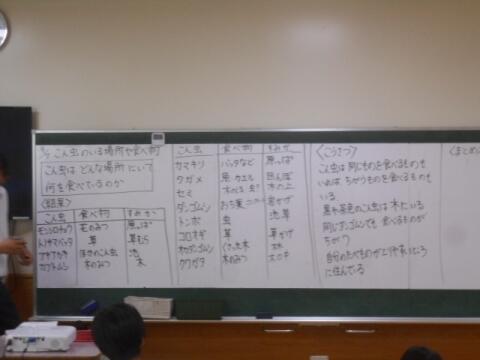 こん虫のいる場所や食べ物
こん虫は どんな場所にいて
何を食べているのか
<結果>
こん虫 食べ物 すみか
モンシロチョウ 花のみつ 原っぱ
トノサマバッタ 草 草むら
アキアカネ ほかのこん虫 池
カブトムシ 木のみつ 木
こん虫 食べ物 すみか
カマキリ バッタなど 原っぱ
タガメ 魚・カエル 田んぼ
セミ 木の上
ダンゴムシ おち葉
トンボ 虫 池 草
コロギス 草かげ
オカダンゴムシ くさった木
クワガタ 木のみつ
<こうさつ>
こん虫は同じものを食べるものも
いれば、ちがうものを食べるものも
いる
黒や茶色のこん虫は 木にいる
同じダンゴムシでも 食べるものが
ちがう?
自分のたべものが
に住んでいる
<まとめ